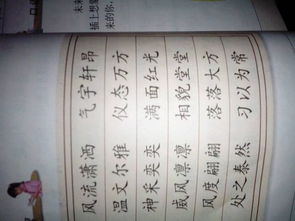 未来
插上想
来的你,
气宇轩昂 仪态万方 满面红光 相貌堂堂 落落大方 习以为常
风流潇洒 温文尔雅 神采奕奕 威风凛凛 风度翩翩 处之泰然